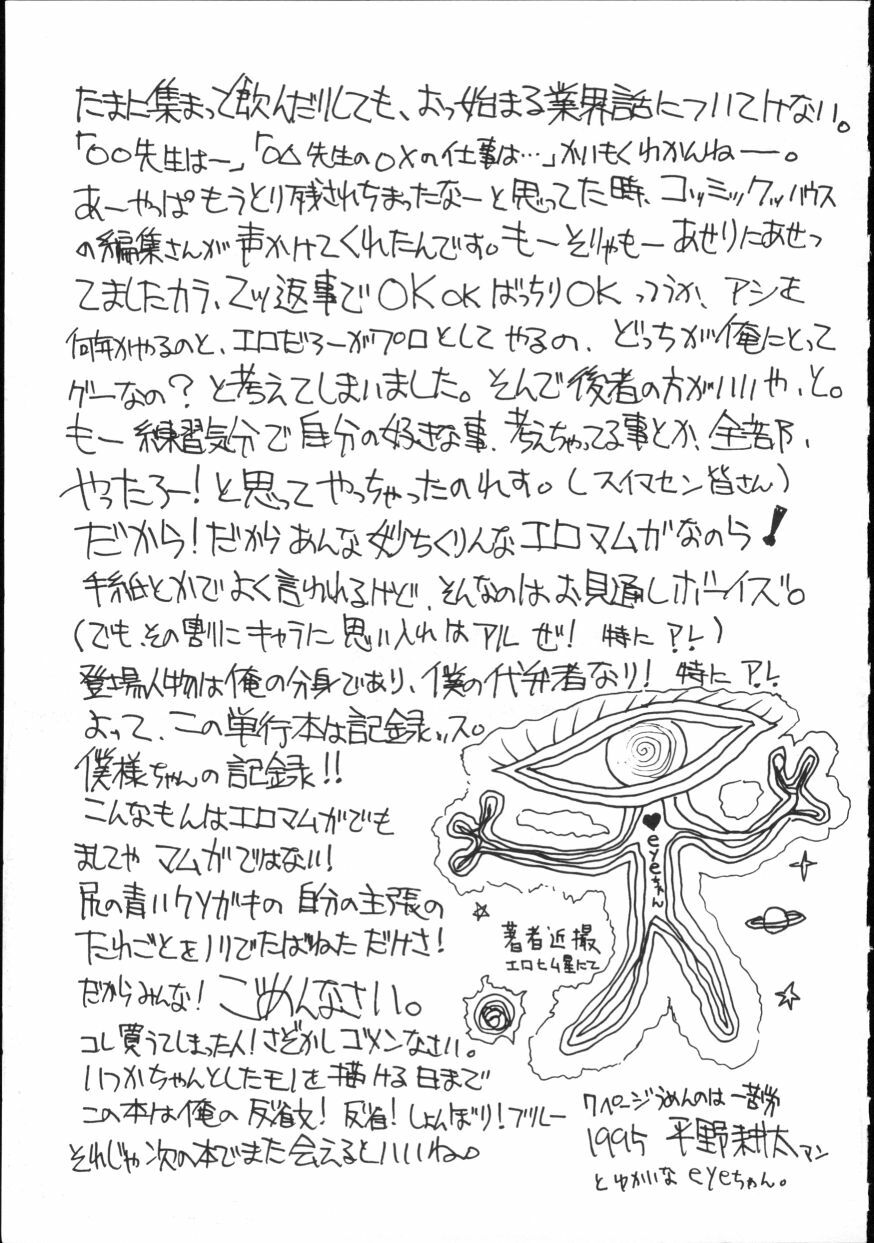 たまに集まって飲んだりしても、おっ始まる業界話についてけない。
「○○先生はー」「○△先生の○×の仕事は…」かいもくわかんねーー。
あーやっぱもうとり残されちまったなーと思ってた時、コッミックッハウス
の編集さんが声かけてくれたんです。もーそりゃもーあせりにあせっ
てましたカラ、二ツ返事でOKOKばっちりOKっつうか、アシを
何年かやるのと、エロだろーがプロとしてやるの、どっちが俺にとって
ゲーなの？と考えてしまいました。そんで後者の方がいいや、と。
もー練習気分で自分の好きな事、考えちゃってる事とか、全部、
やったろー！と思ってやっちゃったのれす。(スイマセン皆さん)
だから！だからあんな妙ちくりんなエロマムガなのら！
手紙とかでよく言われるけど、そんなのはお見通しボーイズ。
(でも、その割にキャラに思い入れはアルぜ！特にアレ)
登場人物は俺の分身であり、僕の代弁者なり！特にアレ
よって、この単行本は記録ッス。
僕様ちゃんの記録!!
こんなもんはエロマムガでも
ましてやマムガではない！
尻の青いクソガキの自分の主張の
たれごとをノリでたばねただけさ！
だからみんな！ごめんなさい。
コレ買うてしまった人！さぞかしゴメンなさい。
いつかちゃんとしたモノを描ける日まで
この本は俺の反省文！反省！しょんぼり！ブルー
それじゃ次の本でまた会えるといいね。
♥eyeちゃん
著者近撮
エロヒム星にて
7ページうめんのは一苦労
1995 平野耕太マン
とゆかいなeyeちゃん。